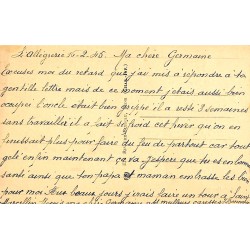 L'allegrerie 16-2-45. Ma chère Gamame
Excuse moi du retard que j'ai mis a répondre à ta
gentille lettre mais de ce moment j'etais aussi bien
occupée l'oncle était bien grippé il a resté 3 semaines
sans travailler il a fait si froid cet hiver qu'on en
finissait plus pour faire du feu de partout car tout
gelé enfin maintenant ça va j'espère que tu es en bonne
santé ainsi que ton papa et maman embrasse les bien
pour moi. Aux beaux jours j'irais faire un tour à